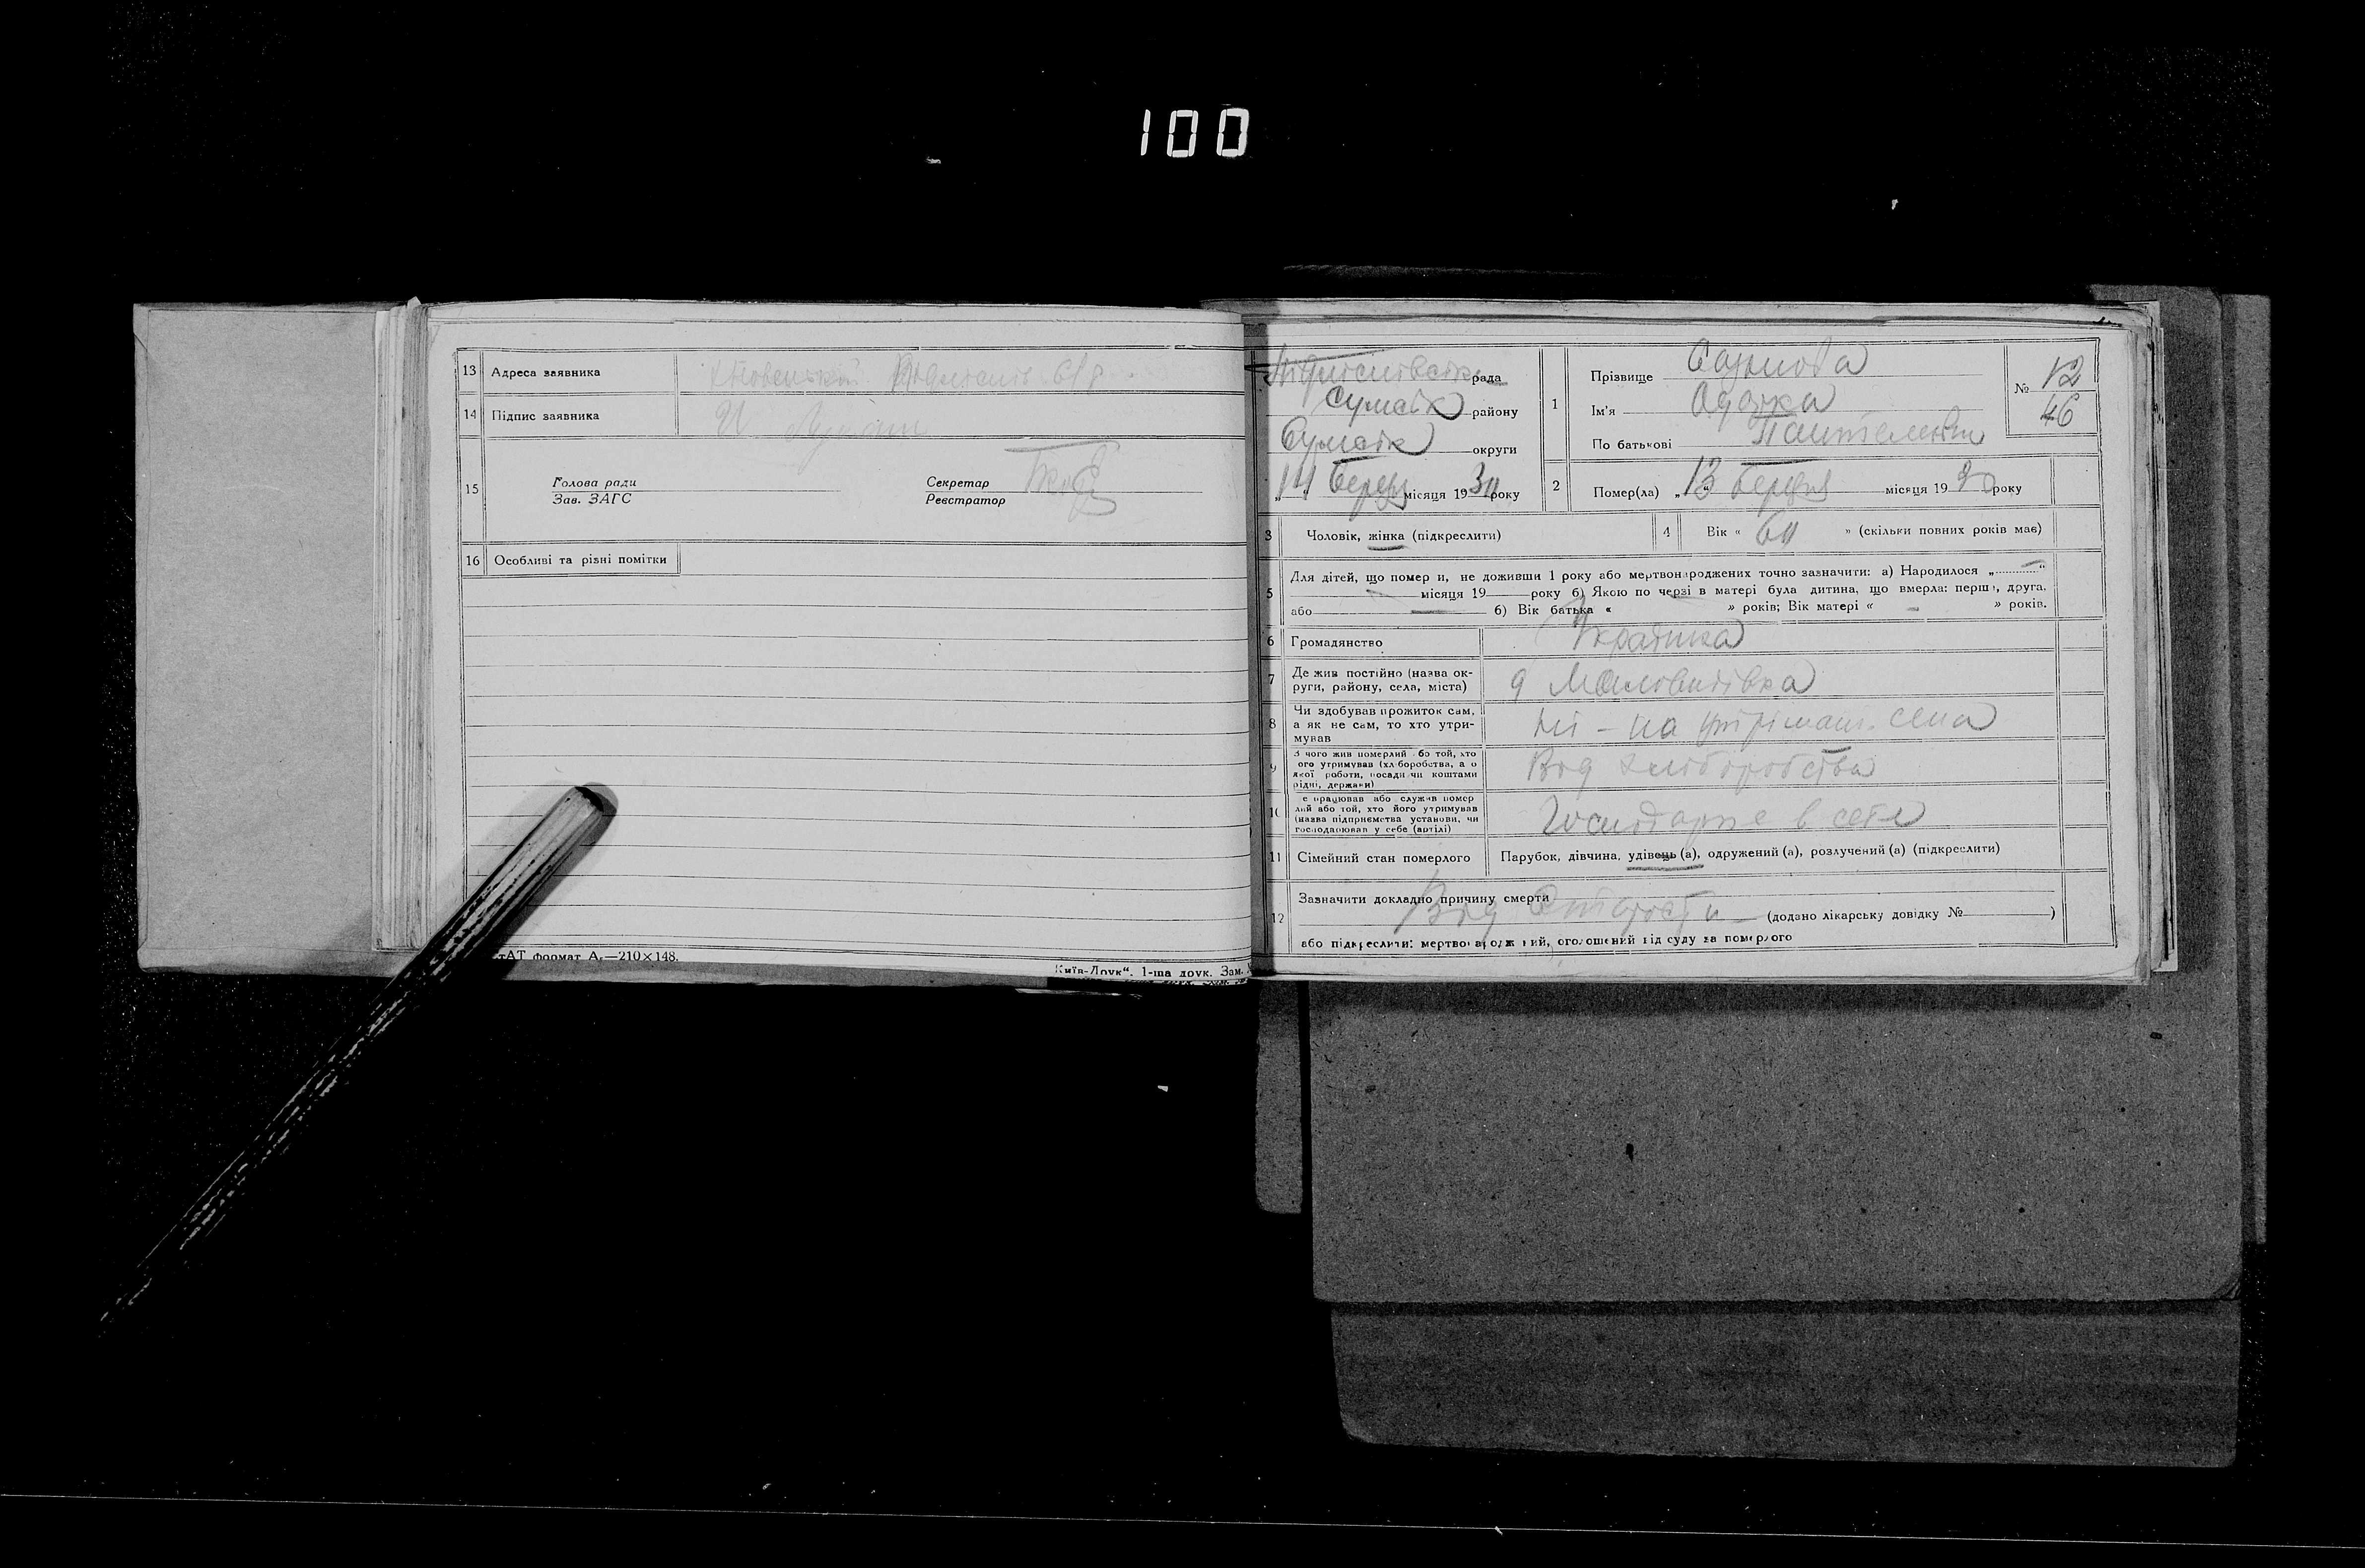 100
13 Адреса заявника
14 Підпис заявника
15 Голова ради
Зав. ЗАГС
Секретар
Реєстратор
16 Особливі та різні помітки
формат А₅—210×148.
Київ-Друк“. 1-ша друк. Зам.
рада
Сумськ району
Сумськ округи
„14“ Березня місяця 1930 року
1 Прізвище
Ім'я
По батькові
№ 12
46
2 Помер(ла) „13“ Березня місяця 1930 року
3 Чоловік, жінка (підкреслити)
4 Вік « 60 » (скільки повних років має)
5 Для дітей, що помер и, не доживши 1 року або мертвонароджених точно зазначити: а) Народилося „ “
місяця 19 року б) Якою по черзі в матері була дитина, що вмерла: перша, друга,
або б) Вік батька « » років; Вік матері « » років.
6 Громадянство Українка
7 Де жив постійно (назва ок-
руги, району, села, міста)
8 Чи здобував прожиток сам,
а як не сам, то хто утри-
мував
Ні — на сина
9 З чого жив померлий або той, хто
його утримував (хліборобства, а о
якої роботи, посади чи коштами
рідні, держави)
Від хліборобства
10 е працював або служив помер
лий або той, хто його утримував
(назва підприємства установи, чи
господарював у себе (артілі)
в себе
11 Сімейний стан померлого Парубок, дівчина, удівець (а), одружений (а), розлучений (а) (підкреслити)
12 Зазначити докладно причину смерти
Від Старости (додано лікарську довідку № )
або підкреслити: мертвонароджений, оголошений від суду за померлого